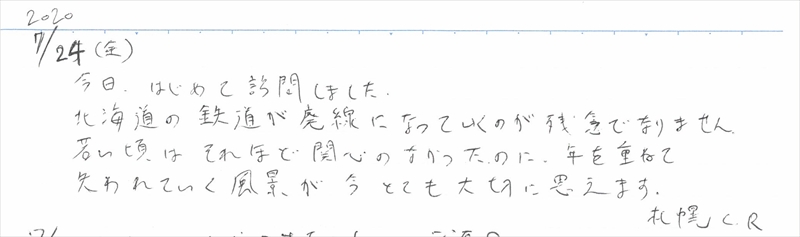 2020
7/24(金)
今日、はじめて訪問しました。
北海道の鉄道が廃線になっていくのが残念でなりません。
若い頃はそれほど関心のなかったのに、年を重ねて
失われていく風景が今とても大切に思えます。
札幌 C.R